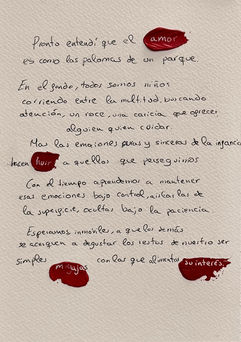 Pronto entendí que el amor
es como las palomas de un parque.
En el fondo, todos somos niños
corriendo entre la multitud, buscando
atención, un roce, una caricia que ofrecer,
alguien quien cuidar.
Mas las emociones puras y sinceras de la infancia
hacen huir a aquellos que perseguimos
Con el tiempo aprendemos a mantener
esas emociones bajo control, aislarlas de
la superficie, ocultas bajo la paciencia
Esperamos inmóviles, a que los demás
se acerquen a degustar los restos de nuestro ser
simples migajas con las que alimentar su interés.